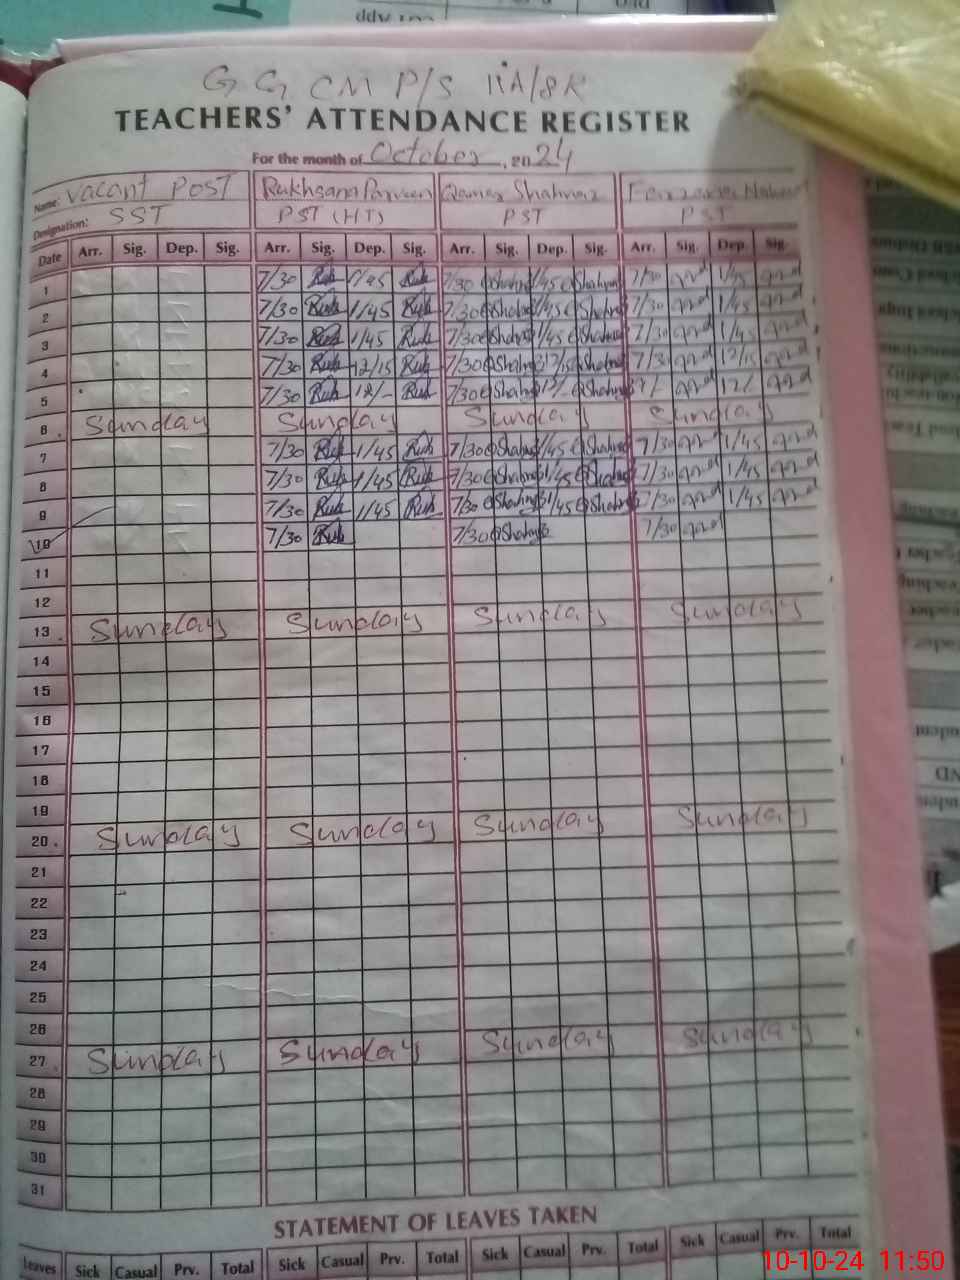 G G CM P/S 11A/8R
TEACHERS' ATTENDANCE REGISTER
For the month of October, 2024
Name: Vacant Post Rukhsana Parveen Qamar Shahnaz
Designation: SST PST (HT) PST PST
Date Arr. Sig. Dep. Sig. Arr. Sig. Dep. Sig. Arr. Sig. Dep. Sig. Arr. Sig. Dep. Sig.
1 7/30 Ruk 1/45 Ruk 7/30 QShahnaz 1/45 QShahnaz 7/30 1/45
2 7/30 Ruk 1/45 Ruk 7/30 QShahnaz 1/45 QShahnaz 7/30 1/45
3 7/30 Ruk 1/45 Ruk 7/30 QShahnaz 1/45 QShahnaz 7/30 1/45
4 7/30 Ruk 12/15 Ruk 7/30 QShahnaz 12/15 QShahnaz 7/30 12/15
5 7/30 Ruk 12/- Ruk 7/30 QShahnaz 12/- QShahnaz 12/
6 Sunday Sunday Sunday Sunday
7 7/30 Ruk 1/45 Ruk 7/30 QShahnaz 1/45 QShahnaz 7/30 1/45
8 7/30 Ruk 1/45 Ruk 7/30 QShahnaz 1/45 QShahnaz 7/30 1/45
9 7/30 Ruk 1/45 Ruk 7/30 QShahnaz 1/45 QShahnaz 7/30 1/45
10 7/30 Ruk 7/30 QShahnaz 7/30
11
12
13 Sunday Sunday Sunday Sunday
14
15
16
17
18
19
20 Sunday Sunday Sunday Sunday
21
22
23
24
25
26
27 Sunday Sunday Sunday Sunday
28
29
30
31
STATEMENT OF LEAVES TAKEN
Leaves Sick Casual Prv. Total Sick Casual Prv. Total Sick Casual Prv. Total Sick Casual Prv. Total
10-10-24 11:50